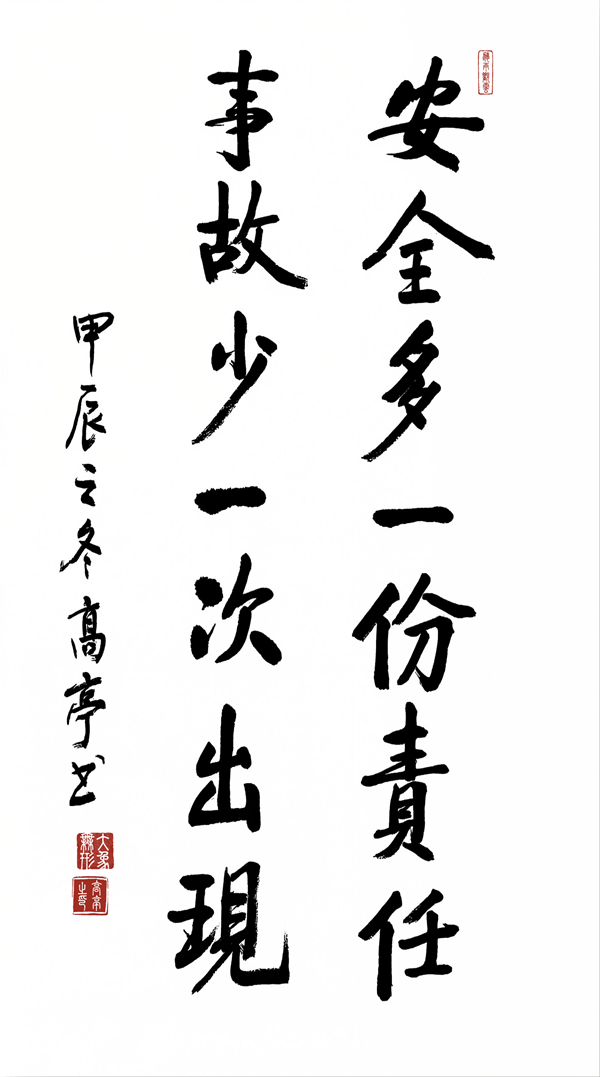 安全多一份責任
事故少一次出現
甲辰之冬高亭书
大象無形
高亭之印